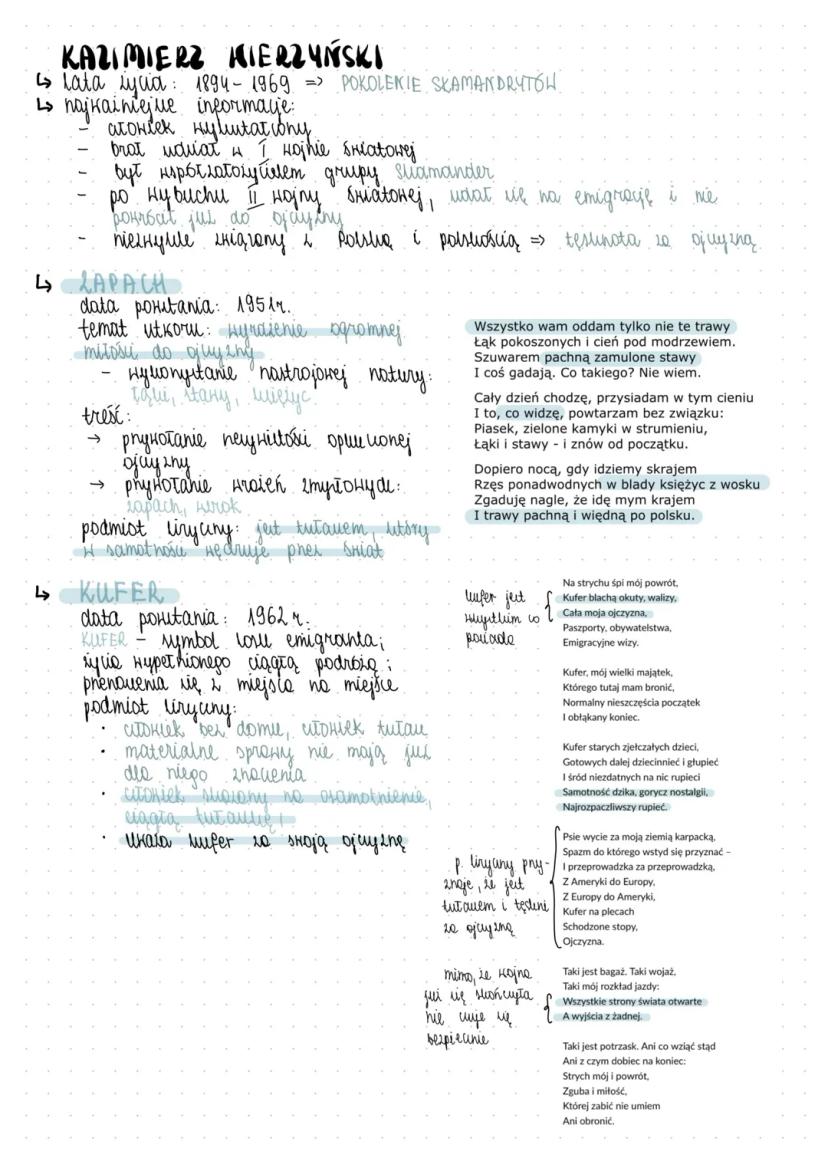 KAZIMIERZ WIERZYŃSKI
↳ lata życia: 1894-1969 => POKOLENIE SKAMANDRYTÓW
↳ najważniejsze informacje:
- człowiek wykształcony
- brał udział w I wojnie światowej
- był współzałożycielem grupy Skamander
- po wybuchu II wojny światowej, udał się na emigrację i nie
powrócił już do ojczyzny
- niezwykle związany z Polską i polskością => tęsknota za ojczyzną
↳ ZAPACH
data powstania: 1951r.
temat utworu: wyrażenie ogromnej
miłości do ojczyzny
- wykorzystanie nastrojowej natury:
łąki, stawy, księżyc
treść:
→ przywołanie rzeczywistości opuszczonej
ojczyzny
→ przywołanie wrażeń zmysłowych:
zapach, wzrok
podmiot liryczny: jest tułaczem, który
w samotności wędruje przez świat
Wszystko wam oddam tylko nie te trawy
Łąk pokoszonych i cień pod modrzewiem.
Szuwarem pachną zamulone stawy
I coś gadają. Co takiego? Nie wiem.
Cały dzień chodzę, przysiadam w tym cieniu
I to, co widzę, powtarzam bez związku:
Piasek, zielone kamyki w strumieniu,
Łąki i stawy - i znów od początku.
Dopiero nocą, gdy idziemy skrajem
Rzęs ponadwodnych w blady księżyc z wosku
Zgaduję nagle, że idę mym krajem
I trawy pachną i więdną po polsku.
↳ KUFER
data powstania: 1962 r.
KUFER - symbol losu emigranta;
życia wypełnionego ciągłą podróżą;
przenoszenia się z miejsca na miejsce
podmiot liryczny:
• człowiek bez domu, człowiek tułacz
• materialne sprawy nie mają już
dla niego znaczenia
• człowiek skazany na osamotnienie,
ciągłą tułaczkę!
• Uważa kufer za swoją ojczyznę
kufer jest
wszystkim co
posiada
Na strychu śpi mój powrót,
Kufer blachą okuty, walizy,
Cała moja ojczyzna,
Paszporty, obywatelstwa,
Emigracyjne wizy.
Kufer, mój wielki majątek,
Którego tutaj mam bronić,
Normalny nieszczęścia początek
I obłąkany koniec.
Kufer starych zjełczałych dzieci,
Gotowych dalej dziecinnieć i głupieć
I śród niezdatnych na nic rupieci
Samotność dzika, gorycz nostalgii,
Najrozpaczliwszy rupieć.
p. liryczny przy-
znaje, że jest
tułaczem i tęskni
za ojczyzną
Psie wycie za moją ziemią karpacką,
Spazm do którego wstyd się przyznać –
I przeprowadzka za przeprowadzką,
Z Ameryki do Europy,
Z Europy do Ameryki,
Kufer na plecach
Schodzone stopy,
Ojczyzna.
mimo, że wojna
już się skończyła
nie czuje się
bezpiecznie
Taki jest bagaż. Taki wojaż,
Taki mój rozkład jazdy:
Wszystkie strony świata otwarte
A wyjścia z żadnej.
Taki jest potrzask. Ani co wziąć stąd
Ani z czym dobiec na koniec:
Strych mój i powrót,
Zguba i miłość,
Której zabić nie umiem
Ani obronić.